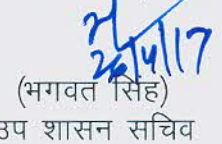 26/4/17
(भगवत सिंह)
उप शासन सचिव